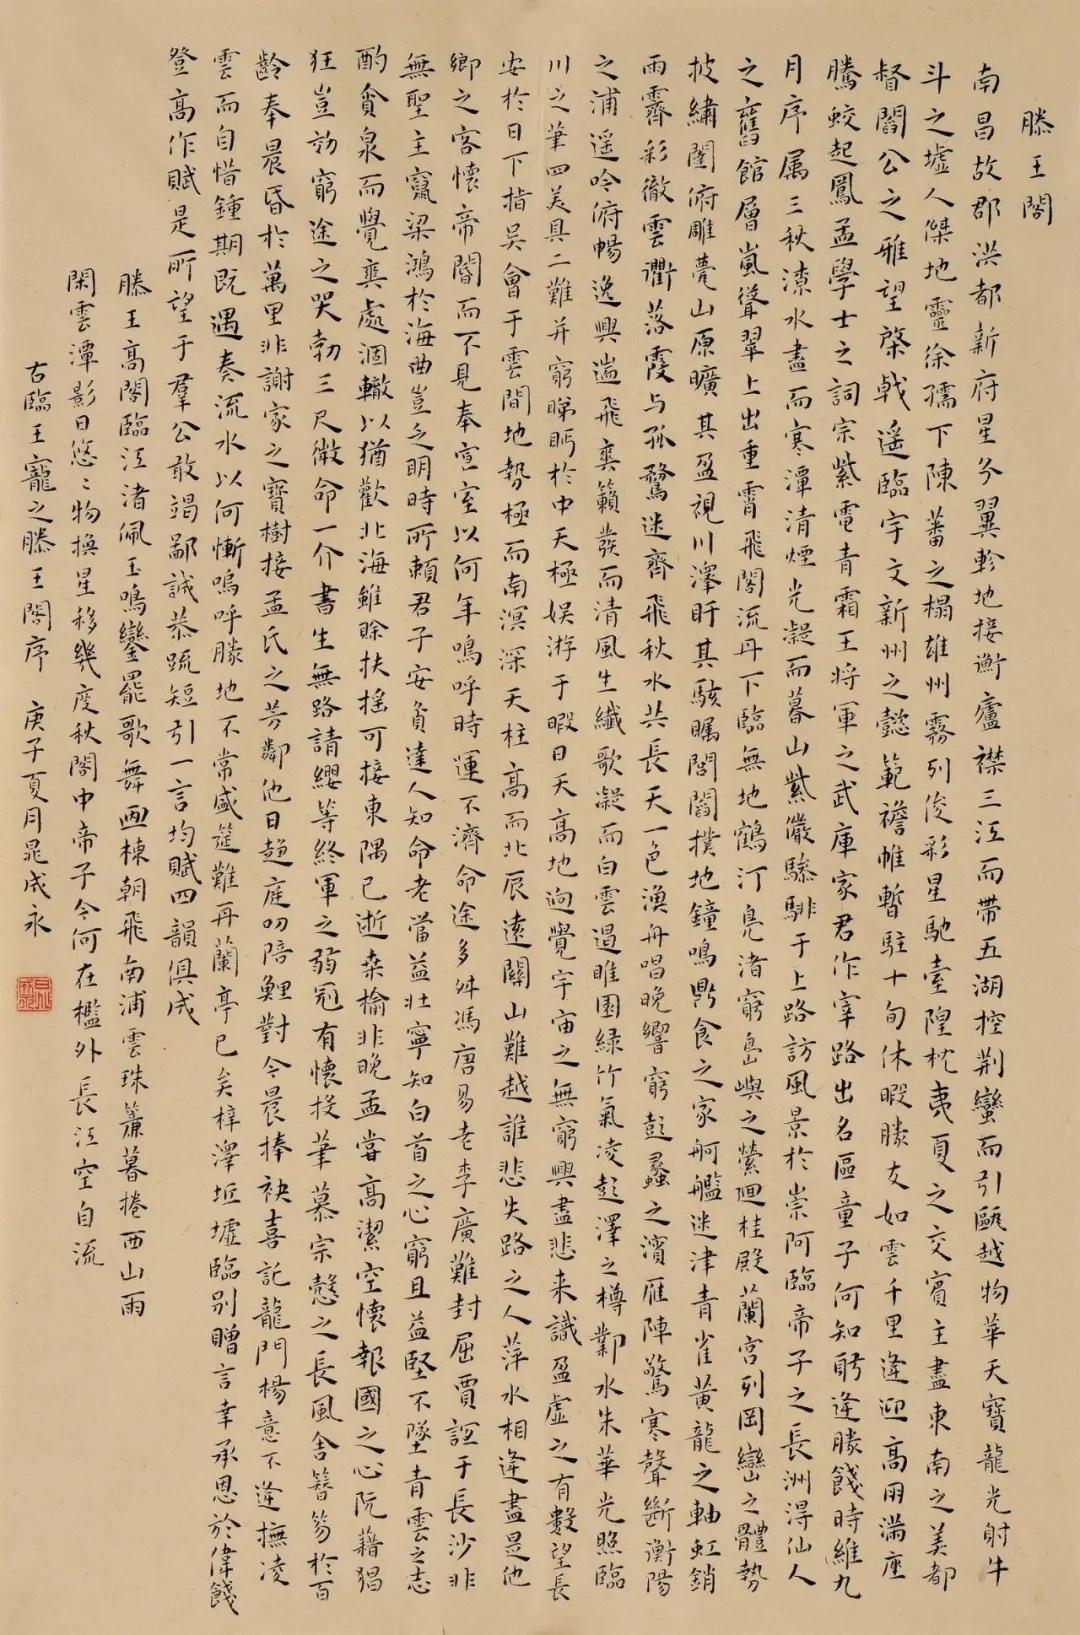 滕王閣
南昌故郡洪都新府星分翼軫地接衡廬襟三江而帶五湖控荆蠻而引甌越物華天寶龍光射牛
斗之墟人傑地靈徐孺下陳蕃之榻雄州霧列俊彩星馳臺隍枕夷夏之交賓主盡東南之美都
督閻公之雅望棨戟遥臨宇文新州之懿範襜帷暫駐十旬休暇勝友如雲千里逢迎髙朋滿座
騰蛟起鳳孟學士之詞宗紫電青霜王将軍之武庫家君作宰路出名區童子何知躬逢勝餞時維九
月序属三秋潦水盡而寒潭清煙光凝而暮山紫儼驂騑于上路訪風景於崇阿臨帝子之長洲得仙人
之舊館層嵐聳翠上出重霄飛閣流丹下臨無地鶴汀凫渚窮島嶼之縈迴桂殿蘭宫列岡巒之體勢
披繡闥俯雕甍山原曠其盈視川澤盱其駭矚閭閻撲地鐘鳴鼎食之家舸艦迷津青雀黄龍之軸虹銷
雨霽彩徹雲衢落霞与孤鶩迷齊飛秋水共長天一色漁舟唱晚響窮彭蠡之濱雁陣驚寒聲斷衡陽
之浦遥吟俯暢逸興遄飛爽籟發而清風生纖歌凝而白雲遏睢園緑竹氣凌彭澤之樽鄴水朱華光照臨
川之筆四美具二難并窮睇眄於中天極娱游于暇日天髙地迥覺宇宙之無窮興盡悲来識盈虚之有數望長
安於日下指吴會于雲間地勢極而南溟深天柱髙而北辰遠關山難越誰悲失路之人萍水相逢盡是他
鄉之客懷帝閽而不見奉宣室以何年嗚呼時運不濟命途多舛馮唐易老李廣難封屈賈誼于長沙非
無聖主竄梁鴻於海曲豈乏明時所賴君子安貧達人知命老當益壯寧知白首之心窮且益堅不墜青雲之志
酌貪泉而覺爽處涸轍以猶歡北海雖賒扶摇可接東隅已逝桑榆非晚孟嘗髙潔空懷報國之心阮藉猖
狂豈効窮途之哭勃三尺微命一介書生無路請纓等終軍之弱冠有懷投筆慕宗慤之長風舍簪笏於百
齡奉晨昏於萬里非謝家之寶樹接孟氏之芳鄰他日趨庭叨陪鯉對今晨捧袂喜託龍門楊意不逢撫凌
雲而自惜鍾期既遇奏流水以何慚嗚呼勝地不常盛筵難再蘭亭已矣梓澤坵墟臨别贈言幸承恩於偉餞
登髙作賦是所望于羣公敢竭鄙誠恭疏短引一言均賦四韻俱成
滕王髙閣臨江渚佩玉鳴鑾罷歌舞画棟朝飛南浦雲珠簾暮捲西山雨
閑雲潭影日悠〻物換星移幾度秋閣中帝子今何在檻外長江空自流
古臨王寵之滕王閣序 庚子夏月晁成永